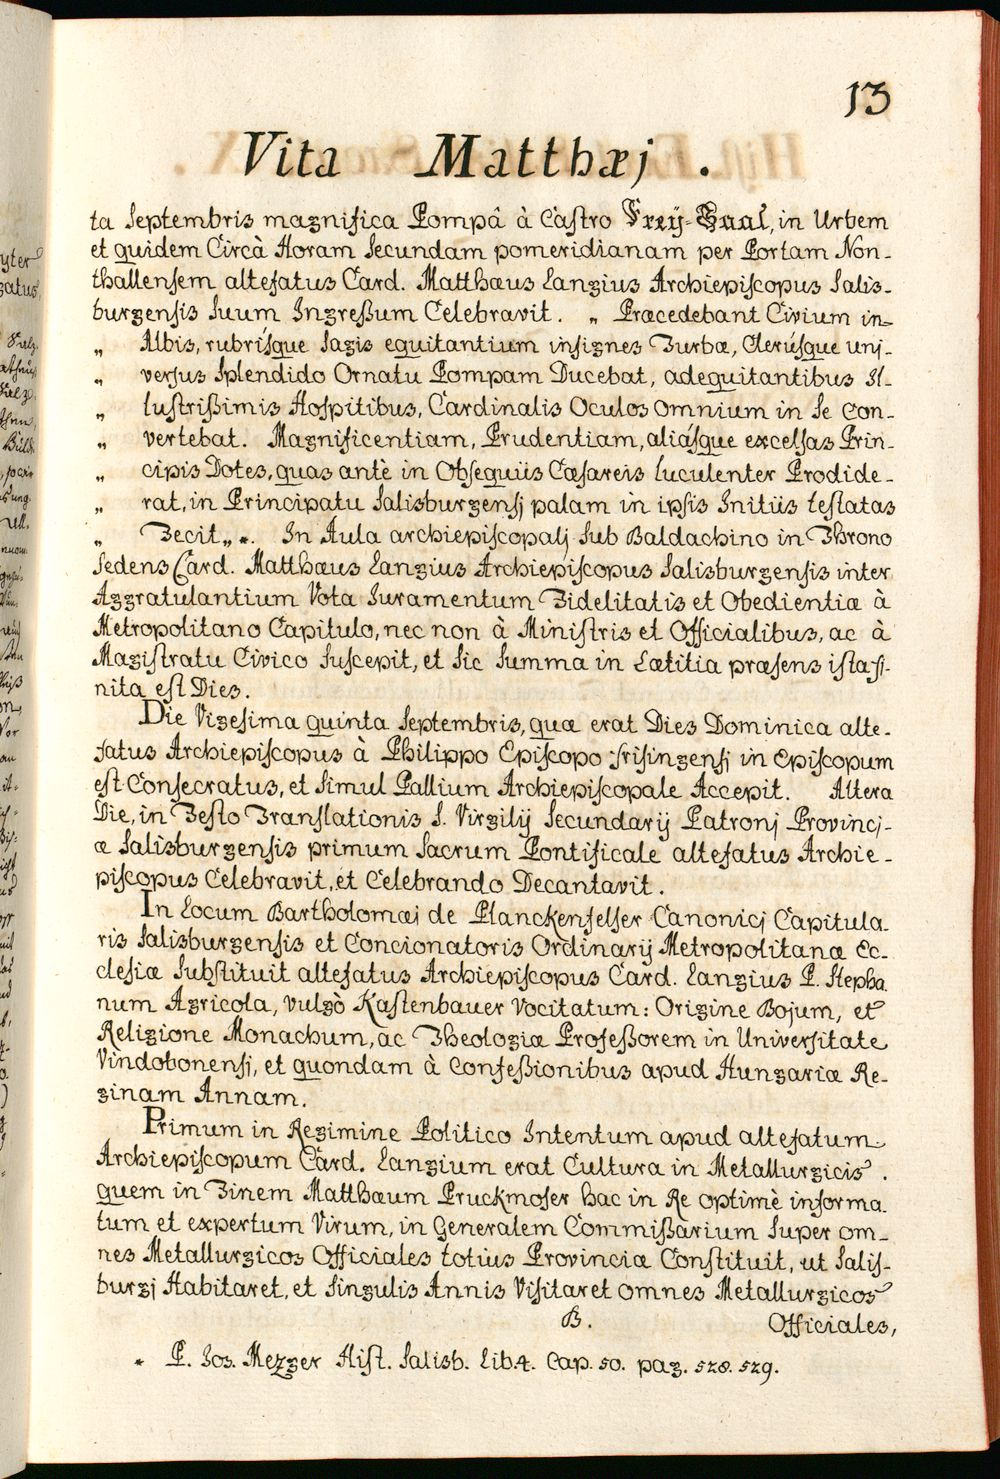 13
Vita Matthæj.
ta Septembris magnifica Pompâ à Castro Freÿ-Saal, in Urbem
et quidem Circà Horam Secundam pomeridianam per Portam Non-
thallensem altefatus Card. Matthæus Langius Archiepiscopus Salis-
burgensis Suum Ingreßum Celebravit. „ Præcedebant Civium in
„ Albis, rubrísque Sagis equitantium insignes Turbæ, Clerúsque uni-
„ versus Splendido Ornatu Pompam Ducebat, adequitantibus Il-
„ lustrißimis Hospitibus, Cardinalis Oculos Omnium in Se Con-
„ vertebat. Magnificentiam, Prudentiam, aliásque excelsas Prin-
„ cipis Dotes, quas antè in Obsequiis Cæsareis luculenter Prodide-
„ rat, in Principatu Salisburgensj palam in ipsis Initiis testatas
„ Fecit„ *. In Aula archiepiscopalj Sub Baldachino in Throno
Sedens Card. Matthæus Langius Archiepiscopus Salisburgensis inter
Aggratulantium Vota Iuramentum Fidelitatis et Obedientiæ à
Metropolitano Capitulo, nec non à Ministris et Officialibus, ac à
Magistratu Civico Suscepit, et Sic Summa in Lætitia præsens ista fi-
nita est Dies.
Die Vigesima quinta Septembris, quæ erat Dies Dominica alte-
fatus Archiepiscopus à Philippo Episcopo frisingensj in Episcopum
est Consecratus, et Simul Pallium Archiepiscopale Accepit. Altera
Die, in Festo Translationis S. Virgilij Secundarij Patronj Provinci-
æ Salisburgensis primum Sacrum Pontificale altefatus Archie-
piscopus Celebravit, et Celebrando Decantavit.
In Locum Bartholomæi de Planckenfelser Canonicj Capitula-
ris Salisburgensis et Concionatoris Ordinarij Metropolitanæ Ec-
clesiæ Substituit altefatus Archiepiscopus Card. Langius P. Stepha
num Agricola, vulgò Kastenbauer Vocitatum: Origine Bojum, et
Religione Monachum, ac Theologiæ Profeßorem in Universitate
Vindobonensj, et quondam à Confeßionibus apud Hungariæ Re-
ginam Annam.
Primum in Regimine Politico Intentum apud altefatum
Archiepiscopum Card. Langium erat Cultura in Metallurgicis.
quem in Finem Matthæum Pruckmoser hac in Re optimè informa
tum et expertum Virum, in Generalem Commißarium Super om-
nes Metallurgicos Officiales totius Provinciæ Constituit, ut Salis-
burgj Habitaret, et Singulis Annis Visitaret omnes Metallurgicos
B. Officiales,
* P. Jos. Mezger Hist. Salisb. Lib. 4. Cap. 50. pag. 528. 529.